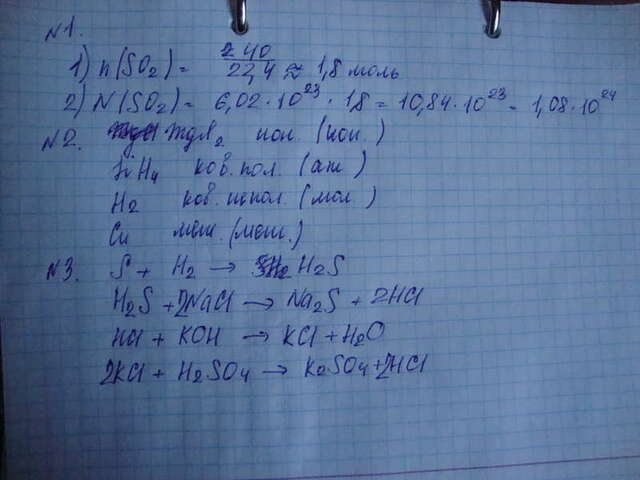 №1.
1) n(SO₂) = 240/22,4 ≈ 1,8 моль
2) N(SO₂) = 6,02 · 10²³ · 1,8 = 10,84 · 10²³ = 1,08 · 10²⁴
№2. ион. (ион.)
SiH₄ ков. пол. (ат)
H₂ ков. непол. (мол.)
Cu мет. (мет.)
№3. S + H₂ → H₂S
H₂S + 2NaCl → Na₂S + 2HCl
HCl + KOH → KCl + H₂O
2KCl + H₂SO₄ → K₂SO₄ + 2HCl